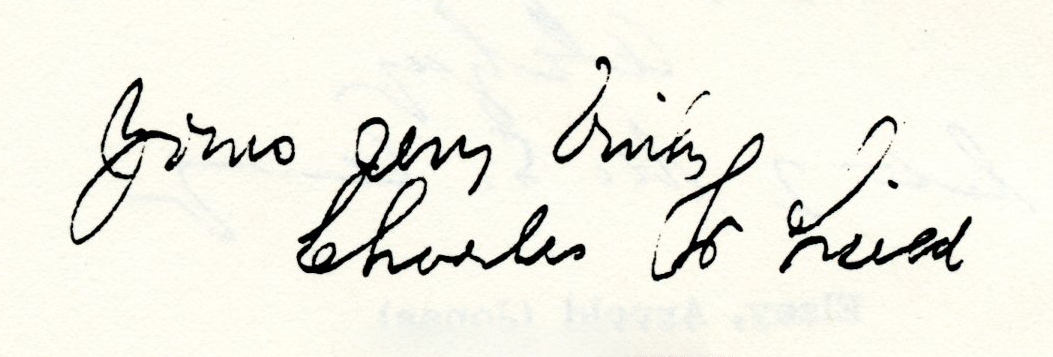 Yours very truly
Charles W Fried